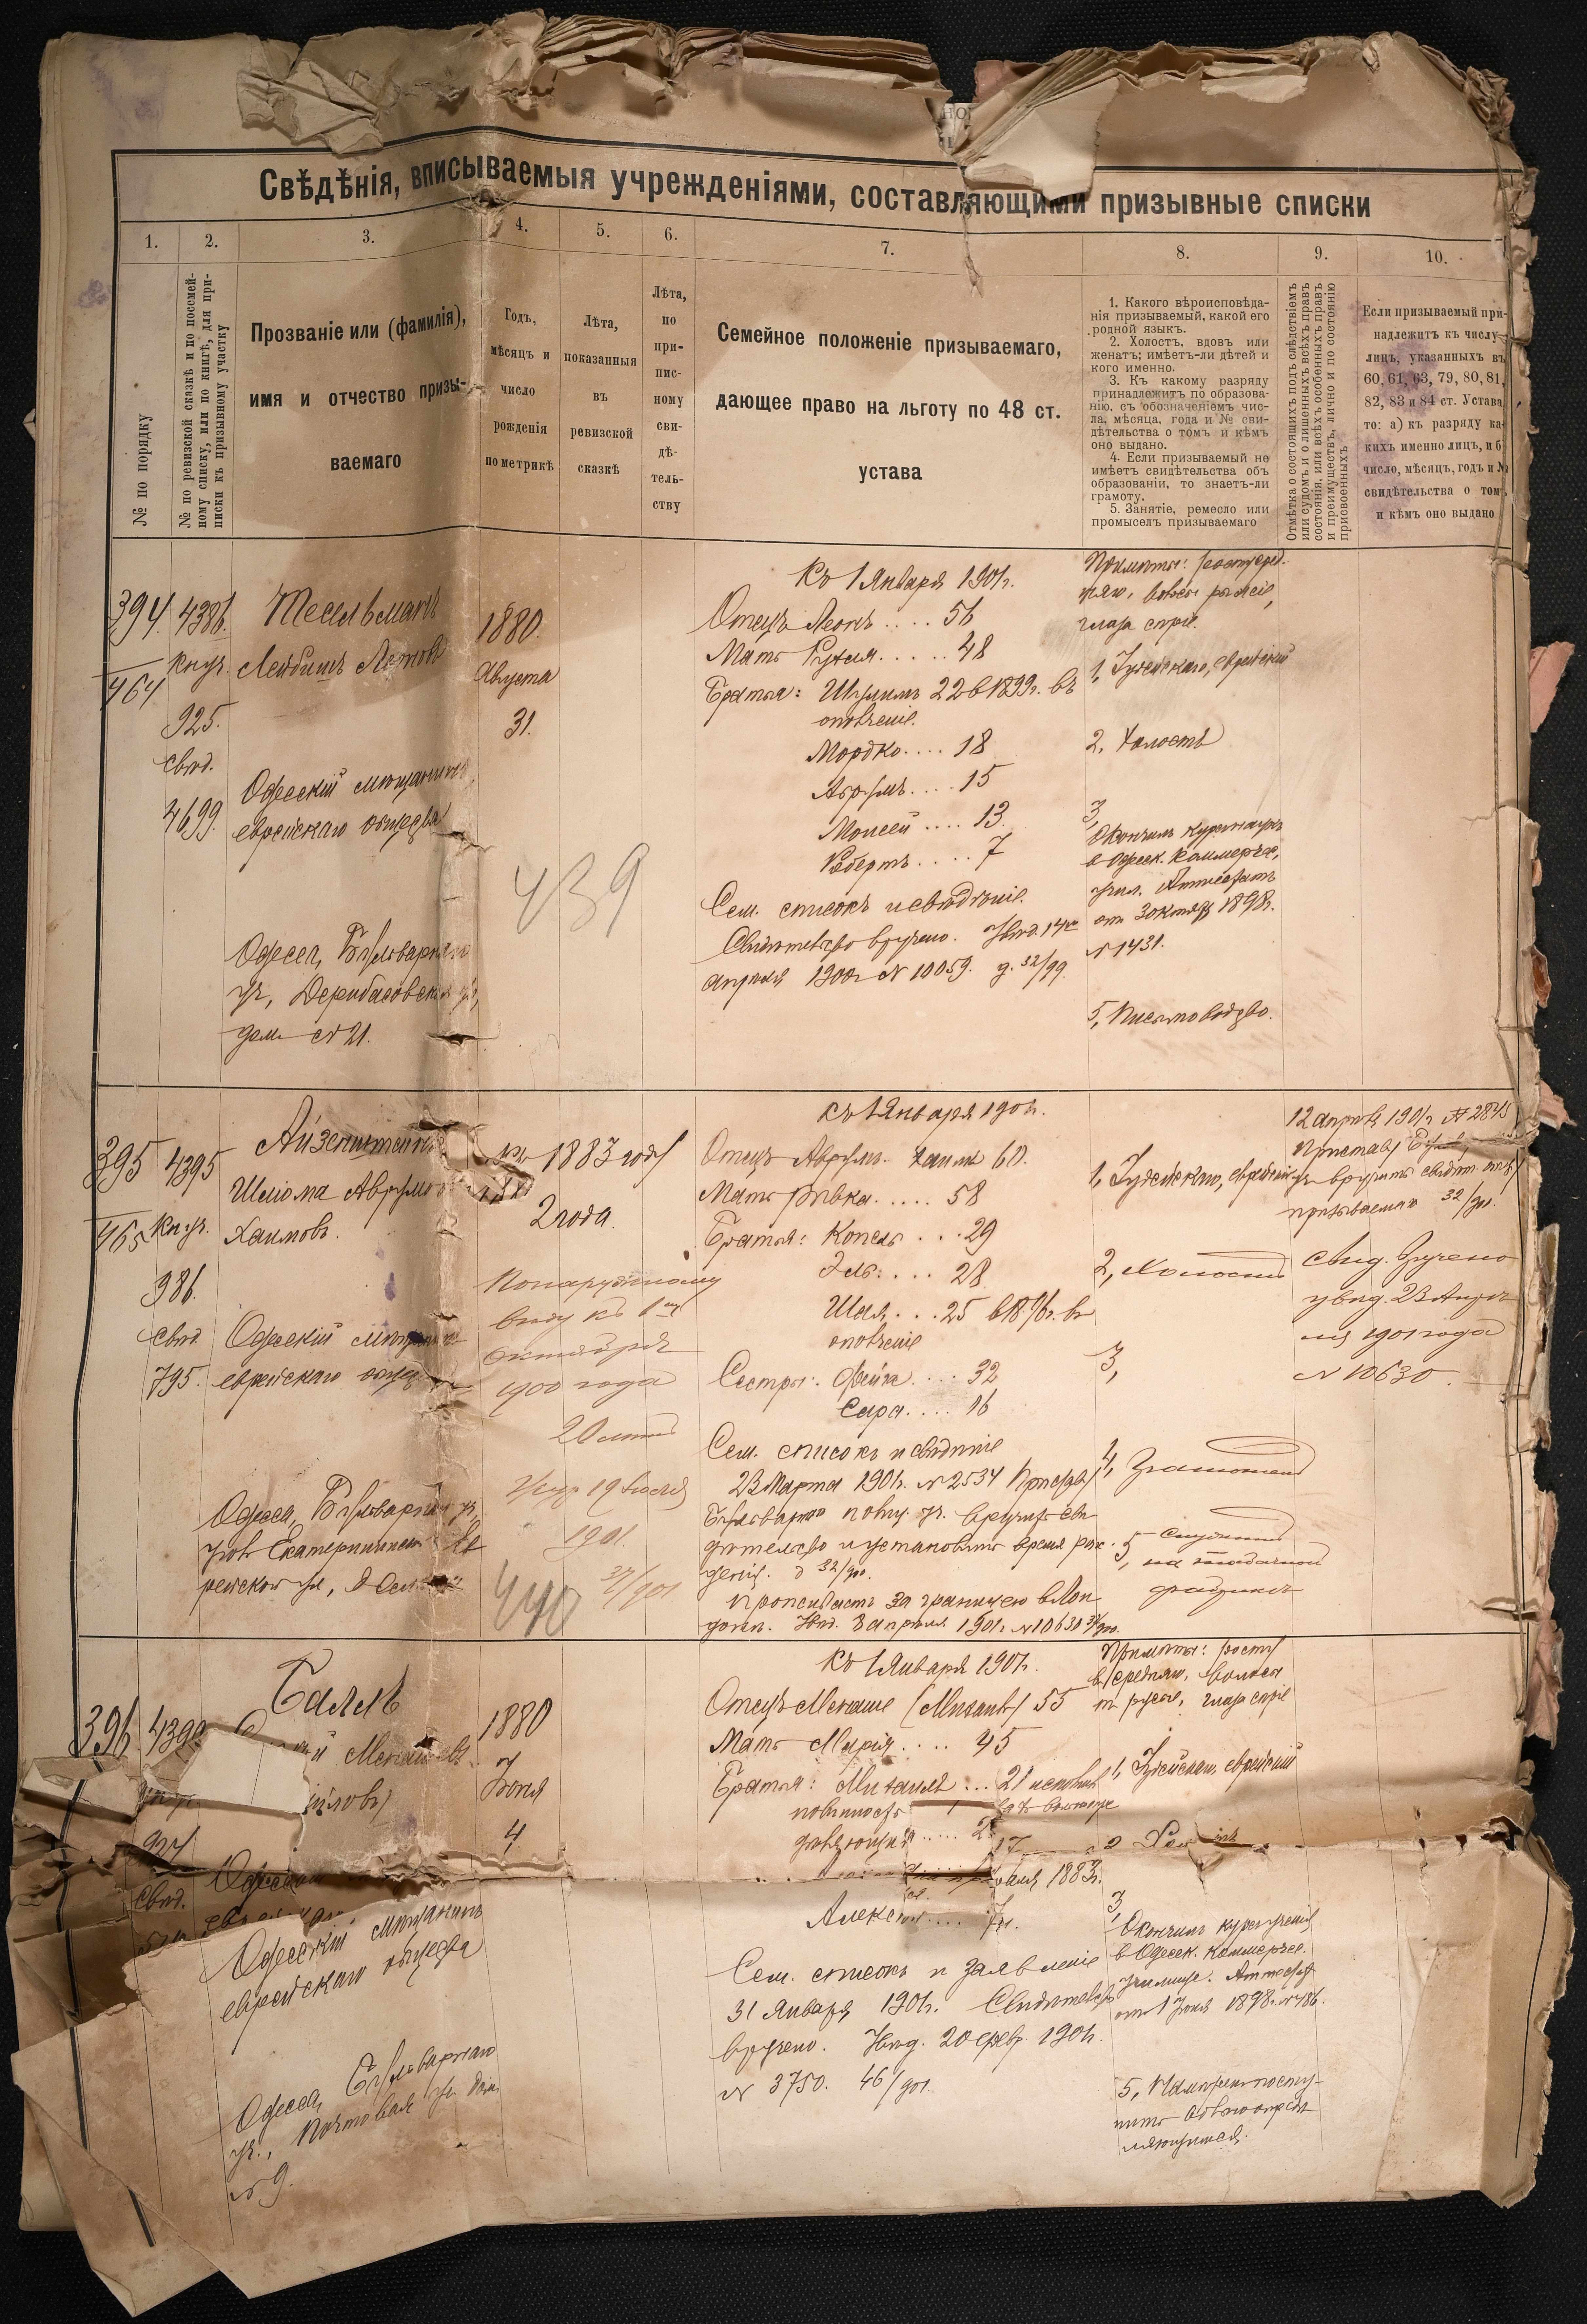 Свѣдѣнія, вписываемыя учрежденіями, составляющими призывные списки
1.
2.
3.
4.
5.
6.
7.
8.
9.
10.
№ по порядку
№ по ревизской сказкѣ и по посемей-
ному списку, или по книгѣ, для при-
писки къ призывному участку
Прозваніе или (фамилія),
имя и отчество призы-
ваемаго
Годъ,
мѣсяцъ и
число
рожденія
по метрикѣ
Лѣта,
показанныя
въ
ревизской
сказкѣ
Лѣта,
по
при-
пис-
ному
сви-
дѣ-
тель-
ству
Семейное положеніе призываемаго,
дающее право на льготу по 48 ст.
устава
1. Какого вѣроисповѣда-
нія призываемый, какой его
родной языкъ.
2. Холостъ, вдовъ или
женатъ; имѣетъ-ли дѣтей и
кого именно.
3. Къ какому разряду
принадлежитъ по образова-
нію, съ обозначеніемъ чис-
ла, мѣсяца, года и № сви-
дѣтельства о томъ и кѣмъ
оно выдано.
4. Если призываемый не
имѣетъ свидѣтельства объ
образованіи, то знаетъ-ли
грамоту.
5. Занятіе, ремесло или
промыселъ призываемаго
Отмѣтка о состоящихъ подъ слѣдствіемъ
или судомъ и о лишенныхъ всѣхъ правъ
состоянія, или всѣхъ особенныхъ правъ
и преимуществъ, лично и по состоянію
присвоенныхъ
Если призываемый при-
надлежитъ къ числу
лицъ, указанныхъ въ
60, 61, 63, 79, 80, 81,
82, 83 и 84 ст. Устава,
то: а) къ разряду ка-
кихъ именно лицъ, и б)
число, мѣсяцъ, годъ и №
свидѣтельства о томъ
и кѣмъ оно выдано
394.
464
4386.
925.
свид.
4699.
Тесельманъ
Лейбишъ Леоновъ
Одесскій мѣщанинъ
еврейскаго общества
Одесса, Бульварнаго
уч., Дерибасовская ул.,
домъ № 21.
1880.
Августа
31.
439
Къ 1 Января 1901 г.
Отецъ Леонъ .... 56
Мать Рухля ..... 48
Братья: 22 въ 1899 г. въ
ополченіе.
Мордко .... 18
Абрумъ .... 15
Моисей .... 13.
Робертъ .... 7
Сем. списокъ и свѣдѣніе.
Свидѣтельство вручено. Увѣд. 14го
апрѣля 1900 г. № 10059. д. 32/99.
Примѣты: ростъ сред-
няго, волосы рыжіе,
глаза сѣрые.
1, Іудейскаго, еврейскій
2, Холостъ
3,
Окончилъ курсъ наукъ
в Одесск. Коммерческ.
учил. Аттестатъ
1898 г.
№ 1431.
5, Письмоводство.
395
465
4395
986.
свид.
795.
Айзенштейнъ
Шлiома Аврумъ
Хаимовъ.
Одесскій мѣщанинъ
еврейскаго общ.
Одесса, Бульварный уч.,
уголъ Екатерининской и Ев-
рейской ул., д.
1883 году
2 года.
По наружному
виду къ 1му
Октября
1900 года
20 лѣтъ
19 Іюля
1901.
440
Къ 1 Января 1901 г.
Отецъ Аврумъ-Хаимъ 60.
Мать Ривка ..... 58
Братья: Копель ... 29
28
25 въ 1896 г. въ
ополченіе
Сестры: Фейга .... 32
Сара .... 16
Сем. списокъ и свѣдѣніе
23 Марта 1901 г. № 2534 Приставу
Бульварнаго полиц. уч. вручить сви-
дѣтельство и установить время рож-
денія. д. 32/900.
Проживаетъ за границею въ Лон-
донѣ. Увѣд. 3 апрѣля 1901 г. № 10630 32/900.
1, Іудейскаго, еврейскій
2, Холостъ
3,
4, Грамотенъ
5, служитъ
на табачной
фабрикѣ
12 апрѣля 1901 г. № 2845
Приставу
уч. вручить свидѣт. отцу
призываемаго 32/900.
свид. вручено
увѣд. 23 Апрѣ-
ля 1901 года
№ 10630.
396
4399
927
свид.
Балль
Одесскій мѣщанинъ
еврейскаго общества
Одесса, Бульварнаго
уч., Почтовая ул. домъ
№ 9.
1880
Іюня
4
Къ 1 Января 1901 г.
Отецъ Менаше (Михаилъ) 55
Мать Марія .... 45
Братья: Михаилъ ... 21
17
1883 г.
Алексѣй
Сем. списокъ и заявленіе
31 Января 1901 г. Свидѣтельство
вручено. Увѣд. 20 февр. 1901 г.
№ 3750. 46/901.
Примѣты: роста
средняго, волосы
русые, глаза сѣрые
1, Іудейскаго, еврейскій
2
3,
Окончилъ курсъ ученія
в Одесск. Коммерческ.
училищѣ. Аттестатъ
отъ 1 Іюня 1898 г. № 486.
5, Намѣренъ посту-
пить вольноопредѣ-
ляющимся.